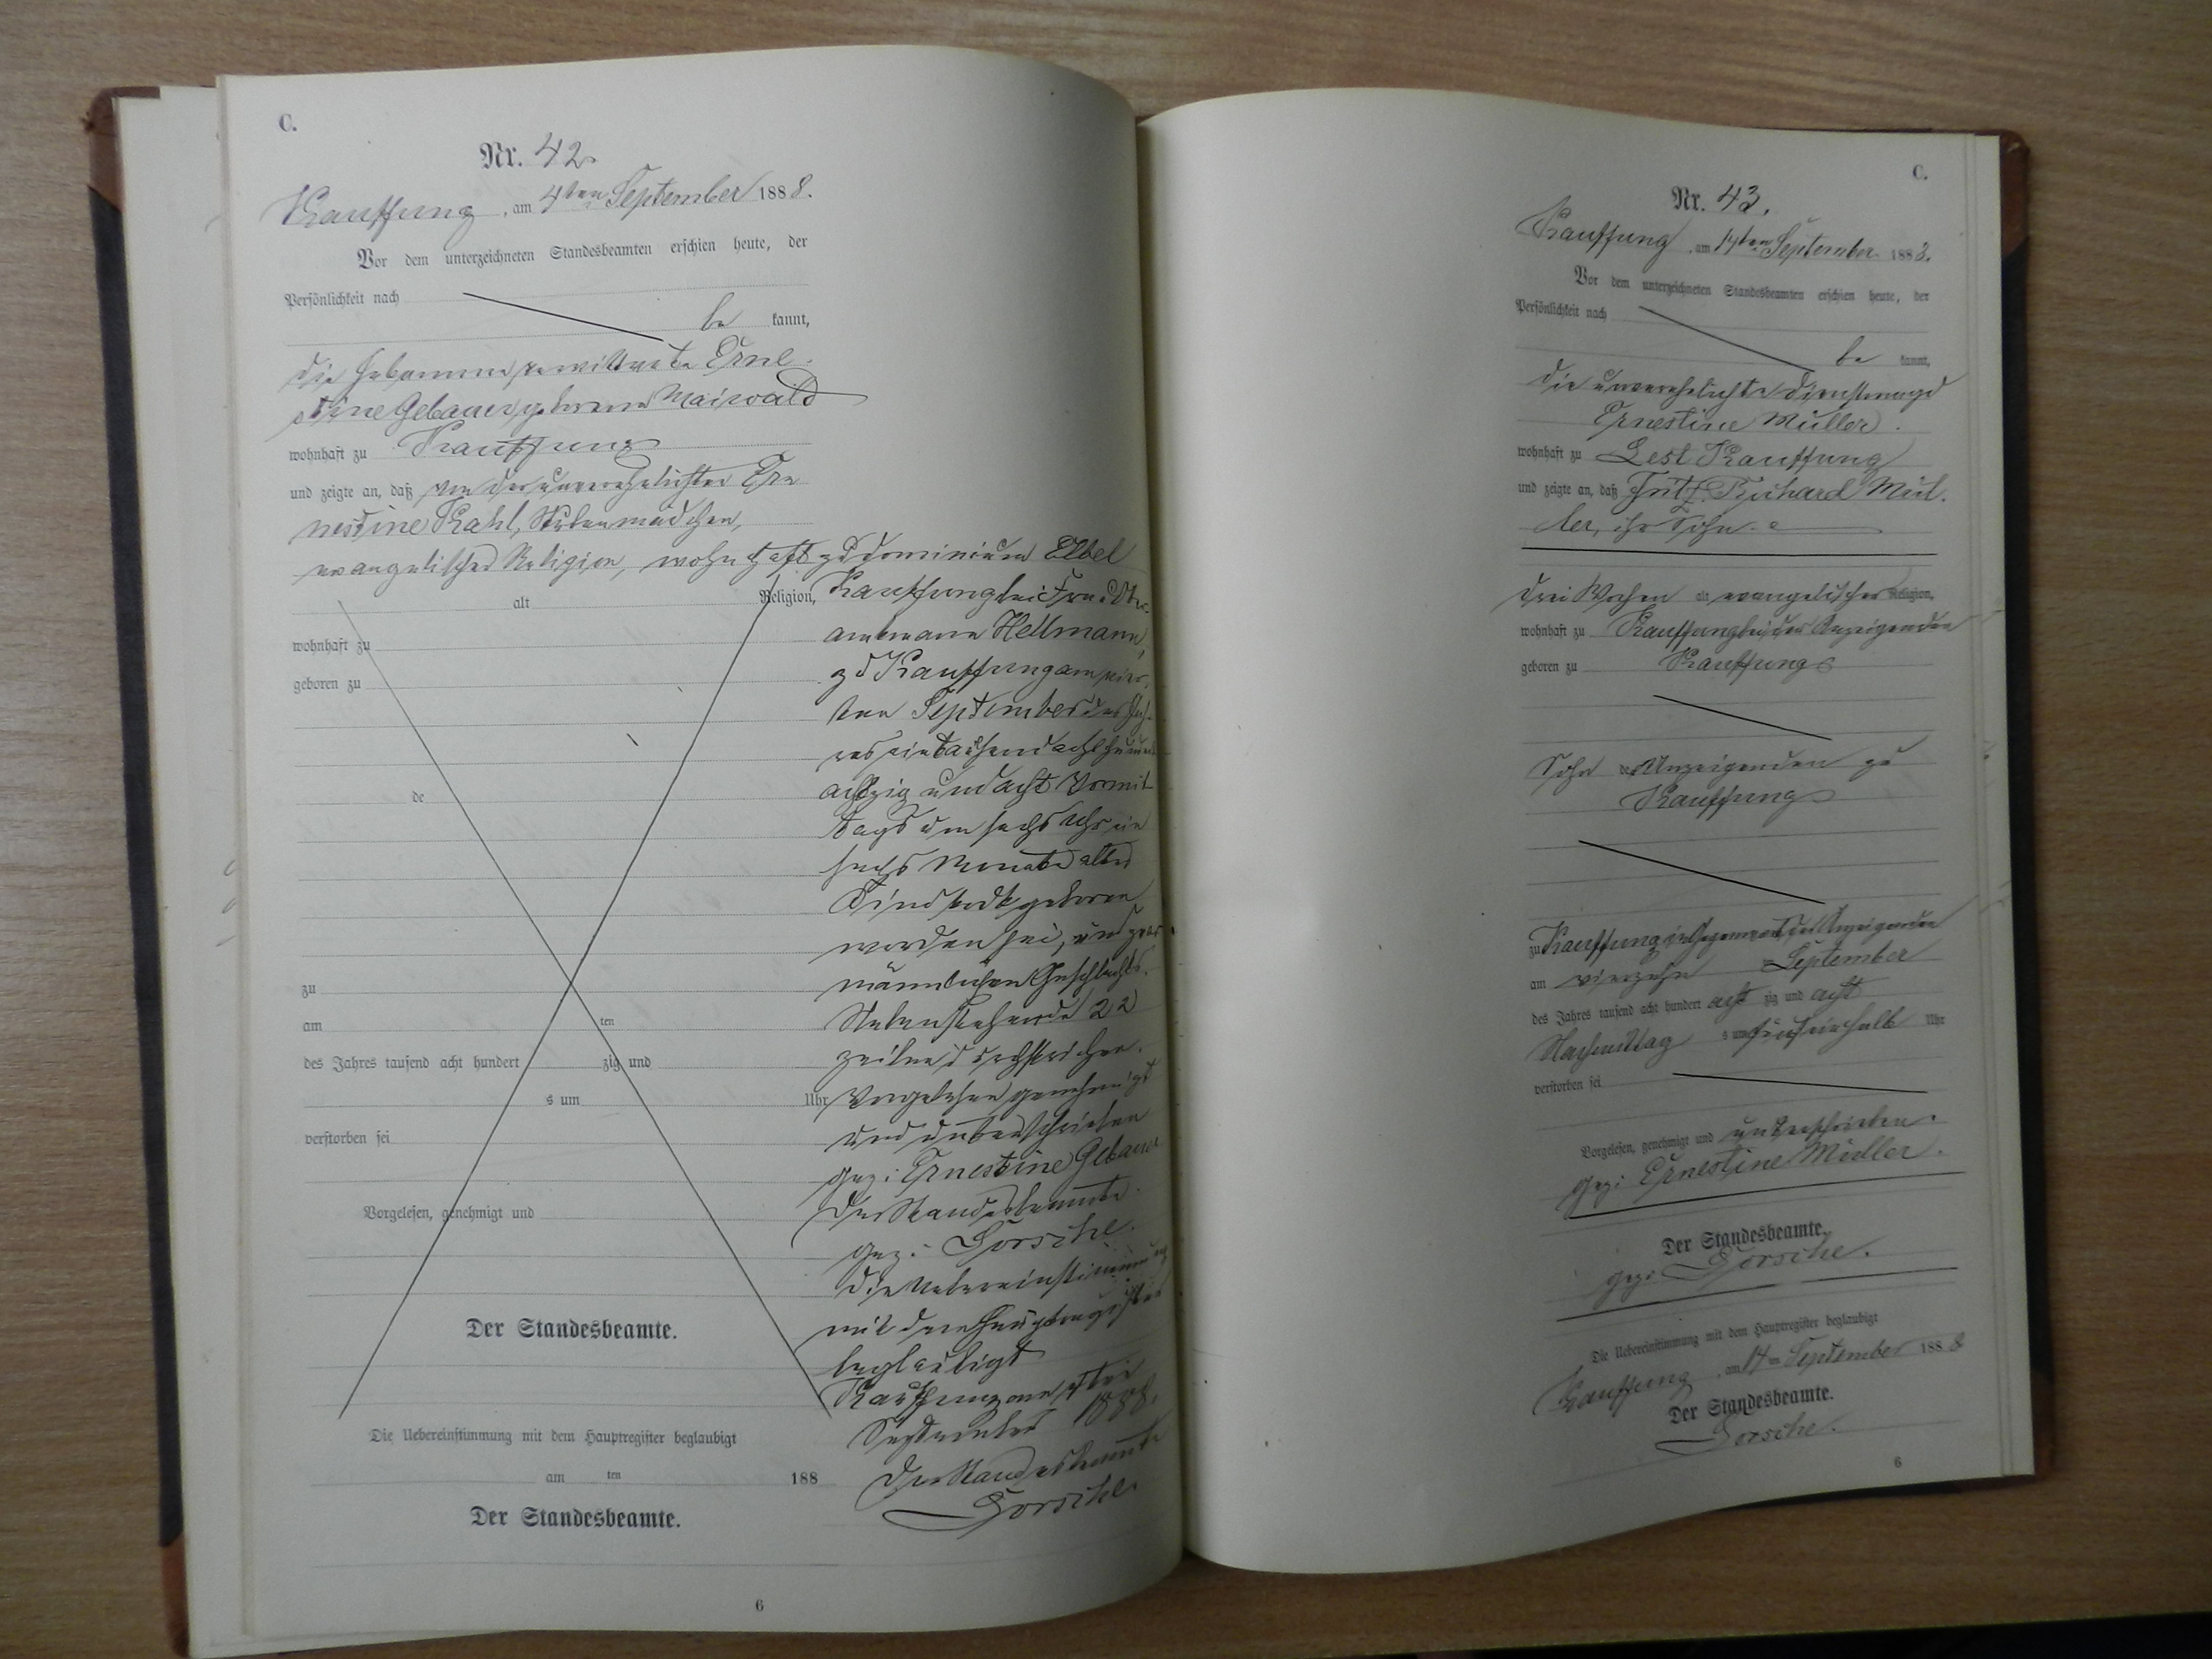 C.
Nr. 42.
Kauffung, am 4ten September 1888.
Vor dem unterzeichneten Standesbeamten erschien heute, der
Persönlichkeit nach
be kannt,
die Hebamme verwittwete Erne-
stine Gebauer, geborene Maiwald
wohnhaft zu Kauffung
und zeigte an, daß von der unverehelichten Er-
nestine Rahl, Stubenmädchen,
evangelischer Religion, wohnhaft zu Dominium Elbel
alt Religion, Kauffung bei Frau Ober-
wohnhaft zu amtmann Hellmann,
geboren zu zu Kauffung am vier-
ten September des Jah-
res eintausendachthundert
achtzig und acht Vormit-
de
tags um sechs Uhr ein
sechs Monate altes
Kind todt geboren
worden sei, und zwar
zu männlichen Geschlechts.
am ten Nebenstehende 22
des Jahres tausend acht hundert zig und Zeilen durchstrichen.
s um Uhr Vorgelesen genehmigt
verstorben sei und unterschrieben
gez: Ernestine Gebauer
Vorgelesen, genehmigt und Der Standesbeamte.
gez: Gorsche.
Die Uebereinstimmung
Der Standesbeamte. mit dem Hauptregister
beglaubigt
Kauffung am 4ten
Die Uebereinstimmung mit dem Hauptregister beglaubigt September 1888.
am ten 188 Der Standesbeamte
Der Standesbeamte. Gorsche.
6
C.
Nr. 43.
Kauffung, am 14ten September 1888.
Vor dem unterzeichneten Standesbeamten erschien heute, der
Persönlichkeit nach
be kannt,
die unverehelichte Dienstmagd
Ernestine Müller.
wohnhaft zu Lest Kauffung
und zeigte an, daß Fritz Richard Mül-
ler, ihr Sohn
drei Wochen alt evangelischer Religion,
wohnhaft zu Kauffung bei der Anzeigenden
geboren zu Kauffung
Sohn der Anzeigenden zu
Kauffung
zu Kauffung in Gegenwart der Anzeigenden
am vierzehn September
des Jahres tausend acht hundert acht zig und acht
Nachmittag s um fünfeinhalb Uhr
verstorben sei
Vorgelesen, genehmigt und unterschrieben.
gez: Ernestine Müller.
Der Standesbeamte.
gez: Gorsche.
Die Uebereinstimmung mit dem Hauptregister beglaubigt
Kauffung, am 14ten September 1888
Der Standesbeamte.
Gorsche.
6